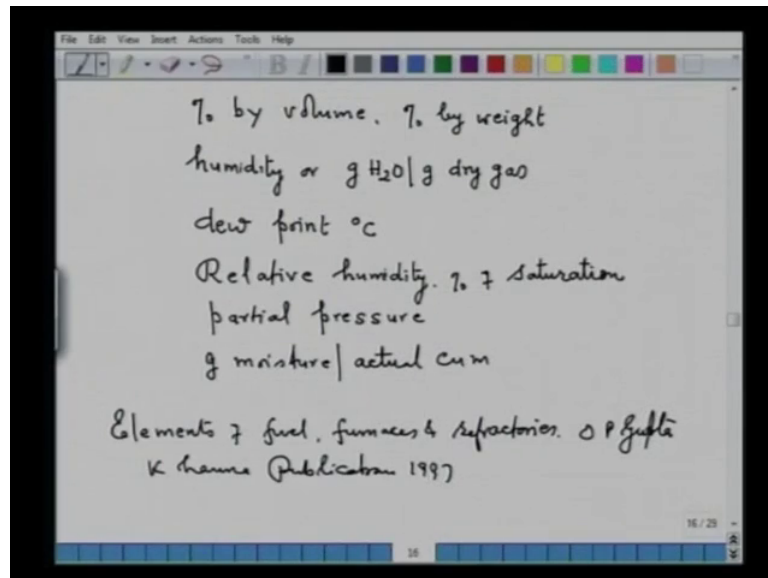 File Edit View Insert Actions Tools Help
B I
% by volume. % by weight
humidity or g H₂O/g dry gas
dew point °C
Relative humidity. % of saturation
partial pressure
g moisture/actual cum
Elements of fuel, furnaces & refractories. O P Gupta
Khanna Publication 1997
16/28
16